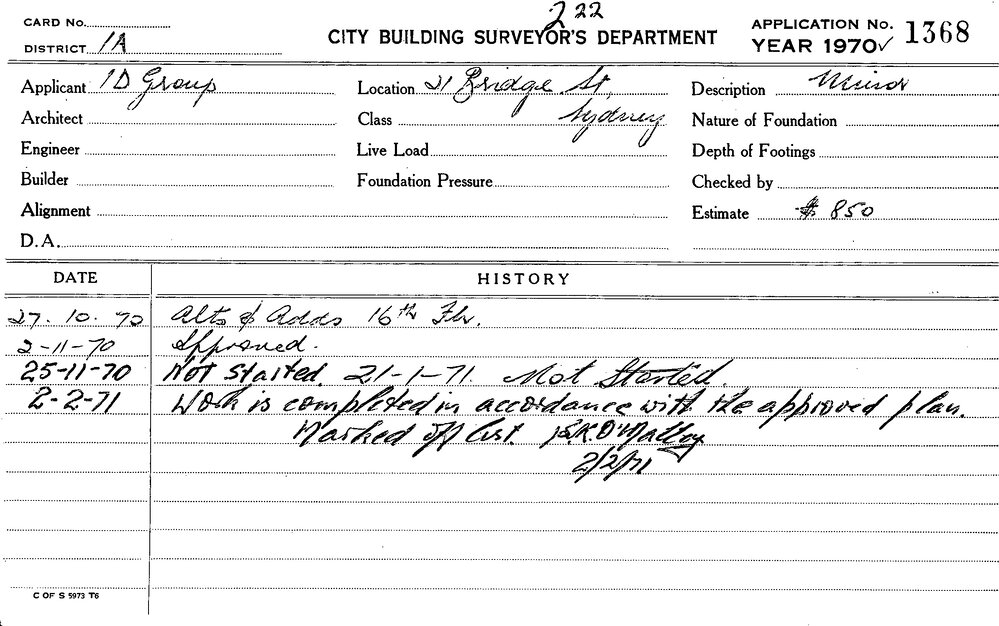 222
CARD No.
CITY BUILDING SURVEYOR'S DEPARTMENT
APPLICATION No. 1368
DISTRICT 1A
YEAR 1970 ✓
Applicant ID Group
Location 21 Bridge St,
Description Minor
Architect
Class Sydney
Nature of Foundation
Engineer
Live Load
Depth of Footings
Builder
Foundation Pressure
Checked by
Alignment
Estimate $ 850
D.A.
DATE HISTORY
27.10.70 Alts & Adds 16th Flr.
2-11-70 Approved.
25-11-70 Not Started. 21-1-71. Not Started.
2-2-71 Work is completed in accordance with the approved plan.
Marked off list. K. O'Malley
2/2/71
C OF S 5973 T6